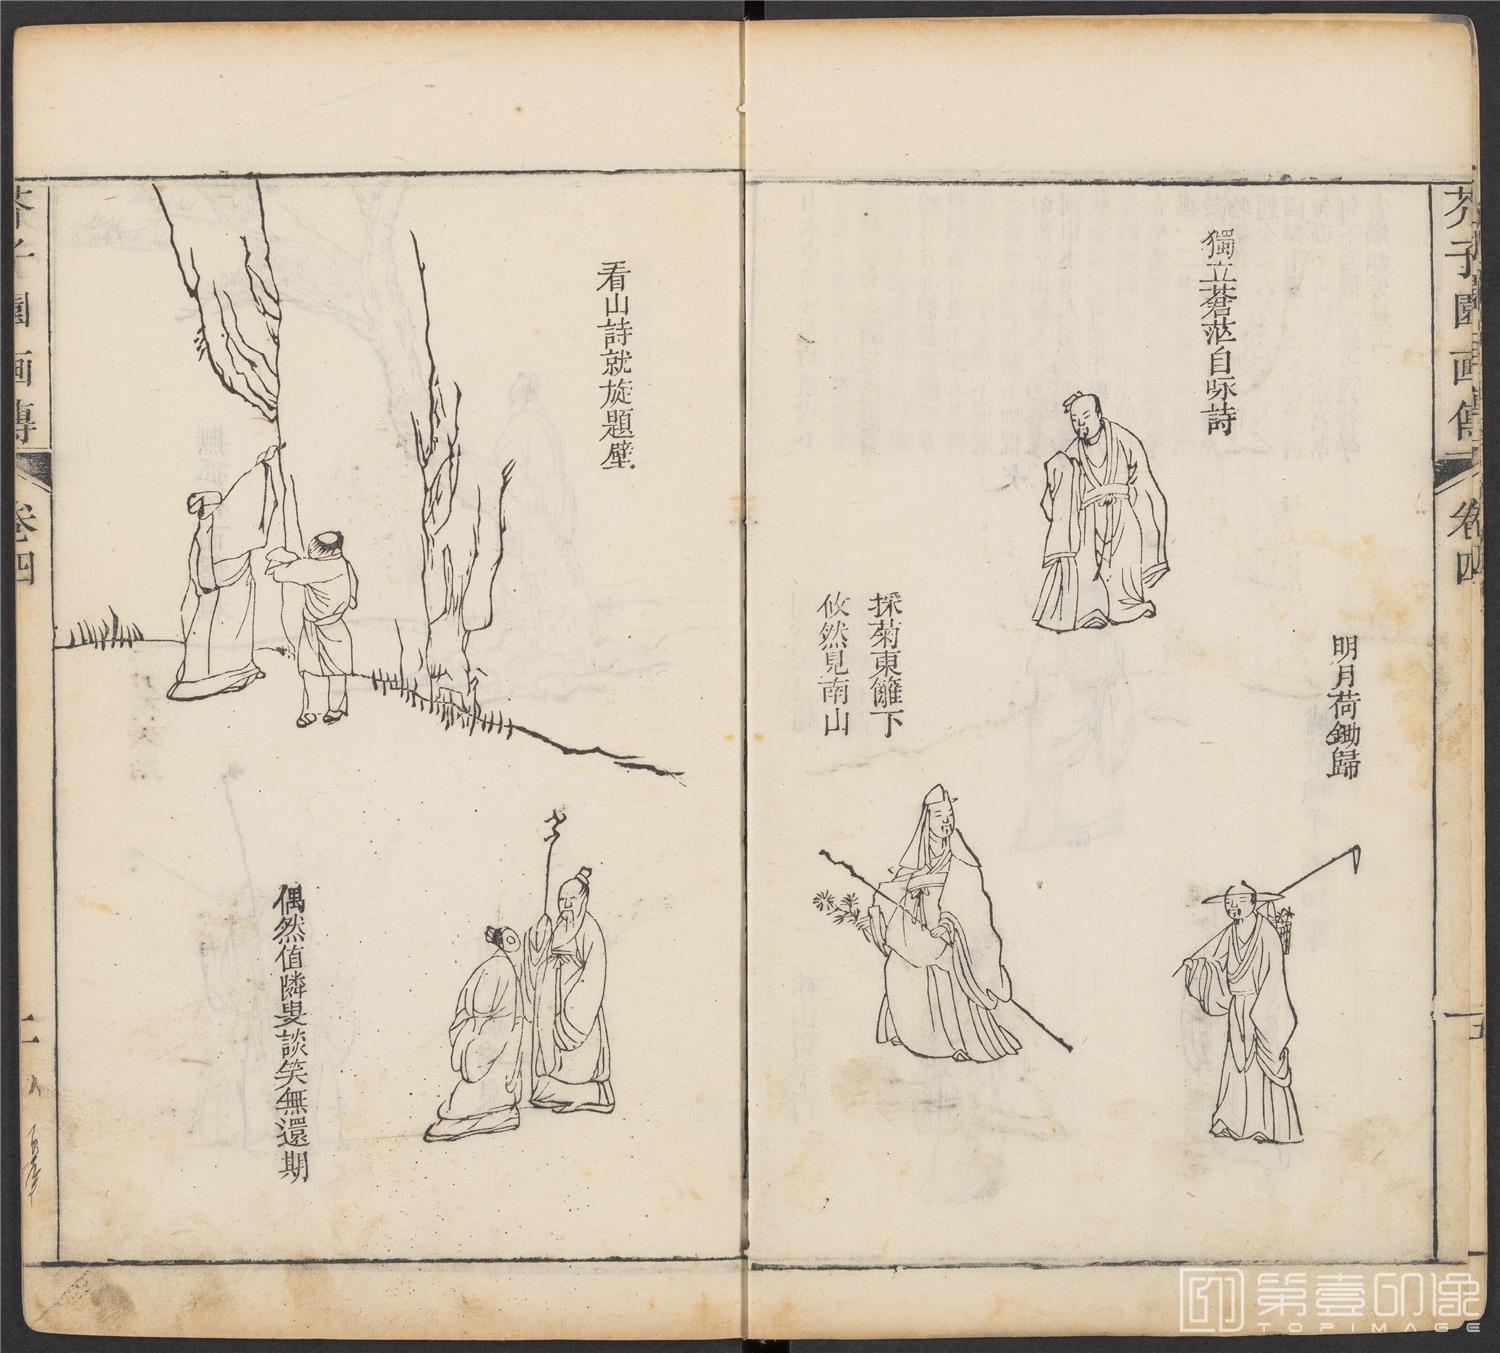 芥子園画傳
卷四
獨立蒼茫自咏詩
明月荷鋤歸
採菊東籬下
攸然見南山
看山詩就旋題壁
偶然值隣叟談笑無還期
芥子園画傳
卷四
第壹印像
TOPIMAGE